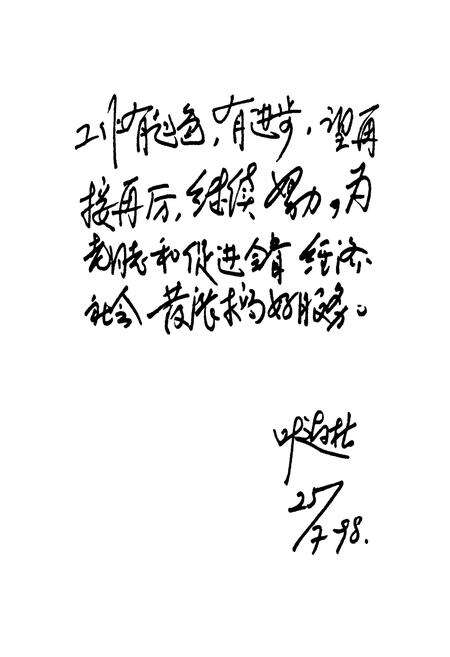 工作有起色,有进步,望再
接再厉,继续努力,为
老同志和促进全省经济
社会发展搞好服务。
叶连松
25/7-98.